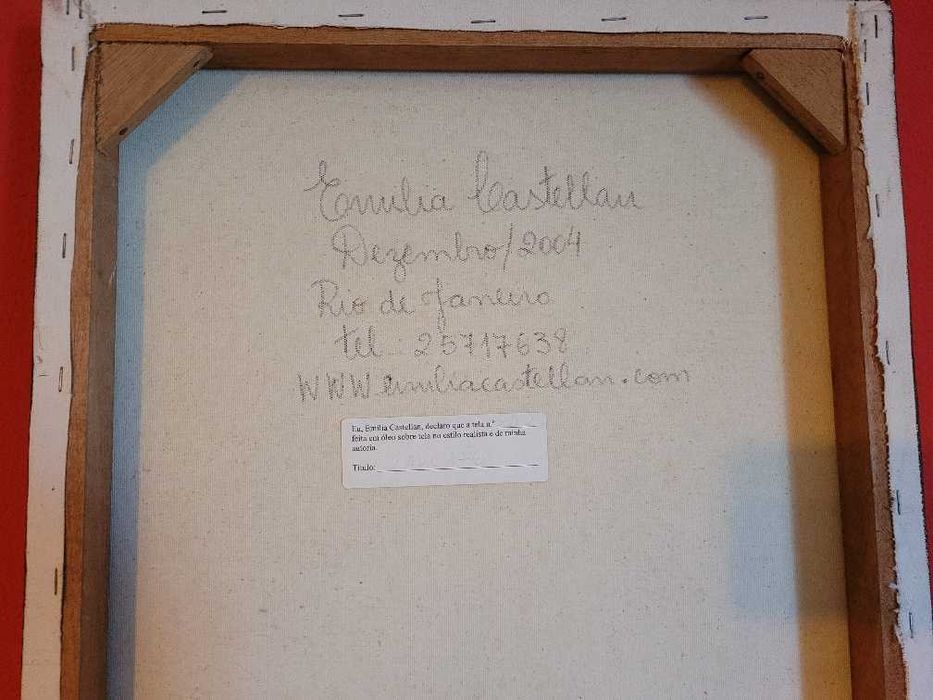 Emilia Castellan
Dezembro/2004
Rio de Janeiro
tel: 25717638
WWW.emiliacastellan.com
Eu, Emília Castellan, declaro que a tela n.º ________
feita em óleo sobre tela no estilo realista e de minha
autoria.
Título: